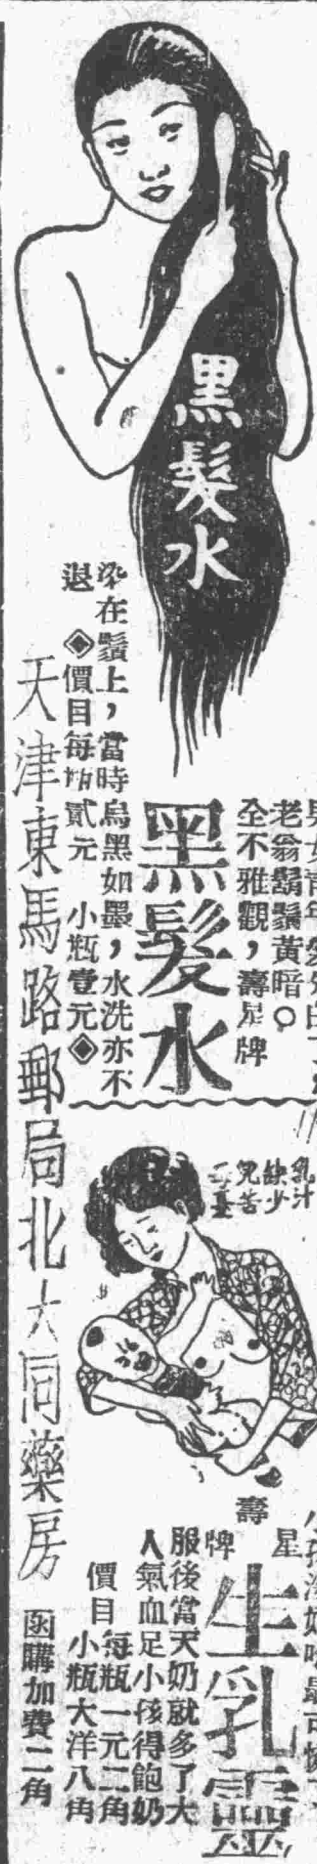 黑髮水
老翁鬍鬚黃暗。
全不雅觀，壽星牌
黑髮水
染在鬚上，當時烏黑如墨，水洗亦不
退 ◈價目每瓶貳元 小瓶壹元◈
乳汁
缺少
兒苦
壽星牌
生乳靈
服後當天奶就多了大
人氣血足小孩得飽奶
價目 每瓶一元二角
小瓶大洋八角
天津東馬路郵局北大同藥房 函購加費二角